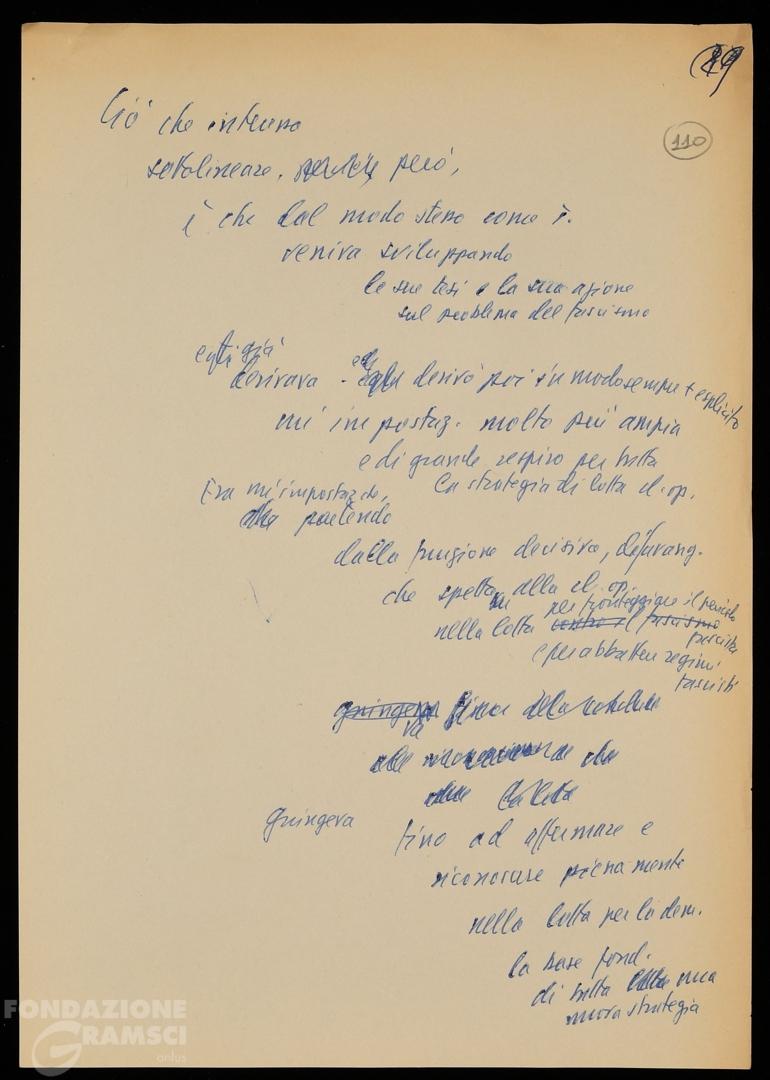 110
Ciò che interessa
sottolineare, però,
è che dal modo stesso come
veniva sviluppando
le sue tesi e la sua azione
sul problema del fascismo
egli già
derivava . derivò poi in modo sempre + esplicito
un' impostaz. molto più ampia
e di grande respiro per tutta
la strategia di lotta cl. op.
Era un'impostaz.
partendo
dalla funzione decisiva, d'avang.
che spetta alla cl. op.
nella lotta contro il fascismo
per fronteggiare il pericolo
fascista
e per abbattere regimi
fascisti
giungeva
fino
che
la lotta
giungeva fino ad affermare e
riconoscere pienamente
nella lotta per la dem.
la base fond.
di tutta una
nuova strategia
FONDAZIONE
GRAMSCI
onlus